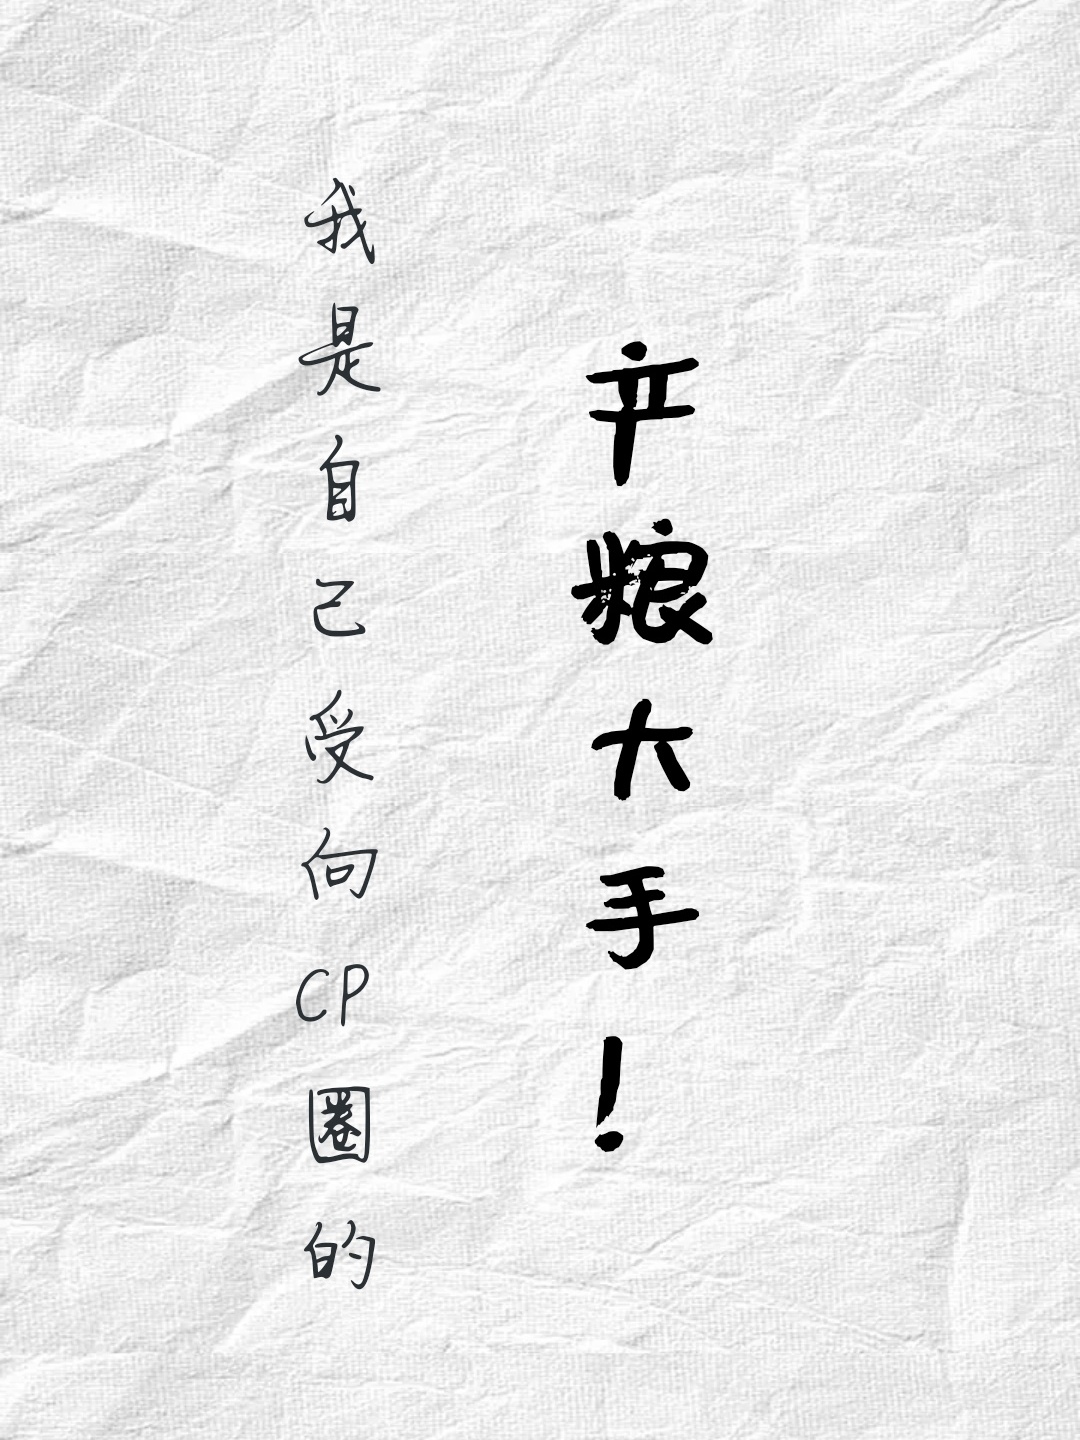 我是自己受向CP圈的
产粮大手！